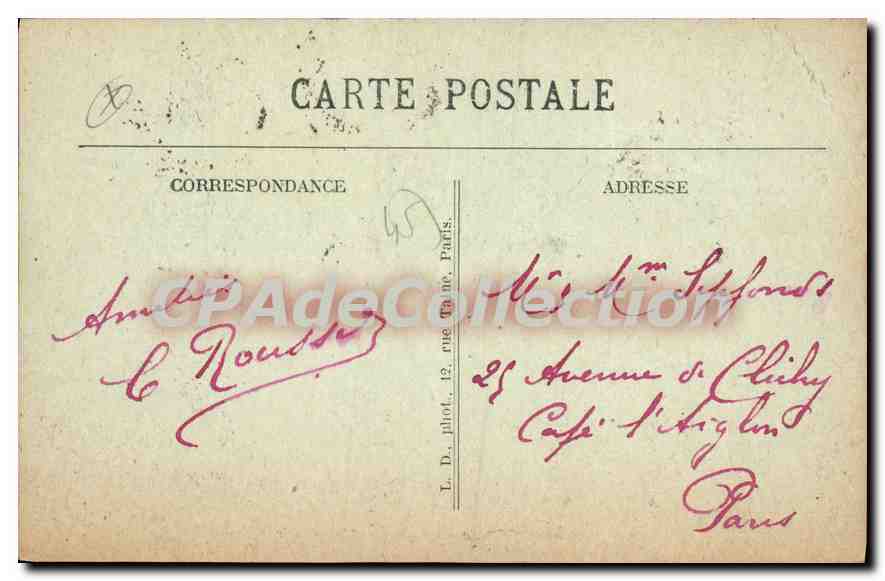 CARTE POSTALE
CORRESPONDANCE
ADRESSE
45
L. D., phot., 12, rue Taine, Paris.
CPAdeCollection.com
Amitiés
C Rousse
Mr & Mme Septfonds
25 Avenue de Clichy
Café l'Aiglon
Paris